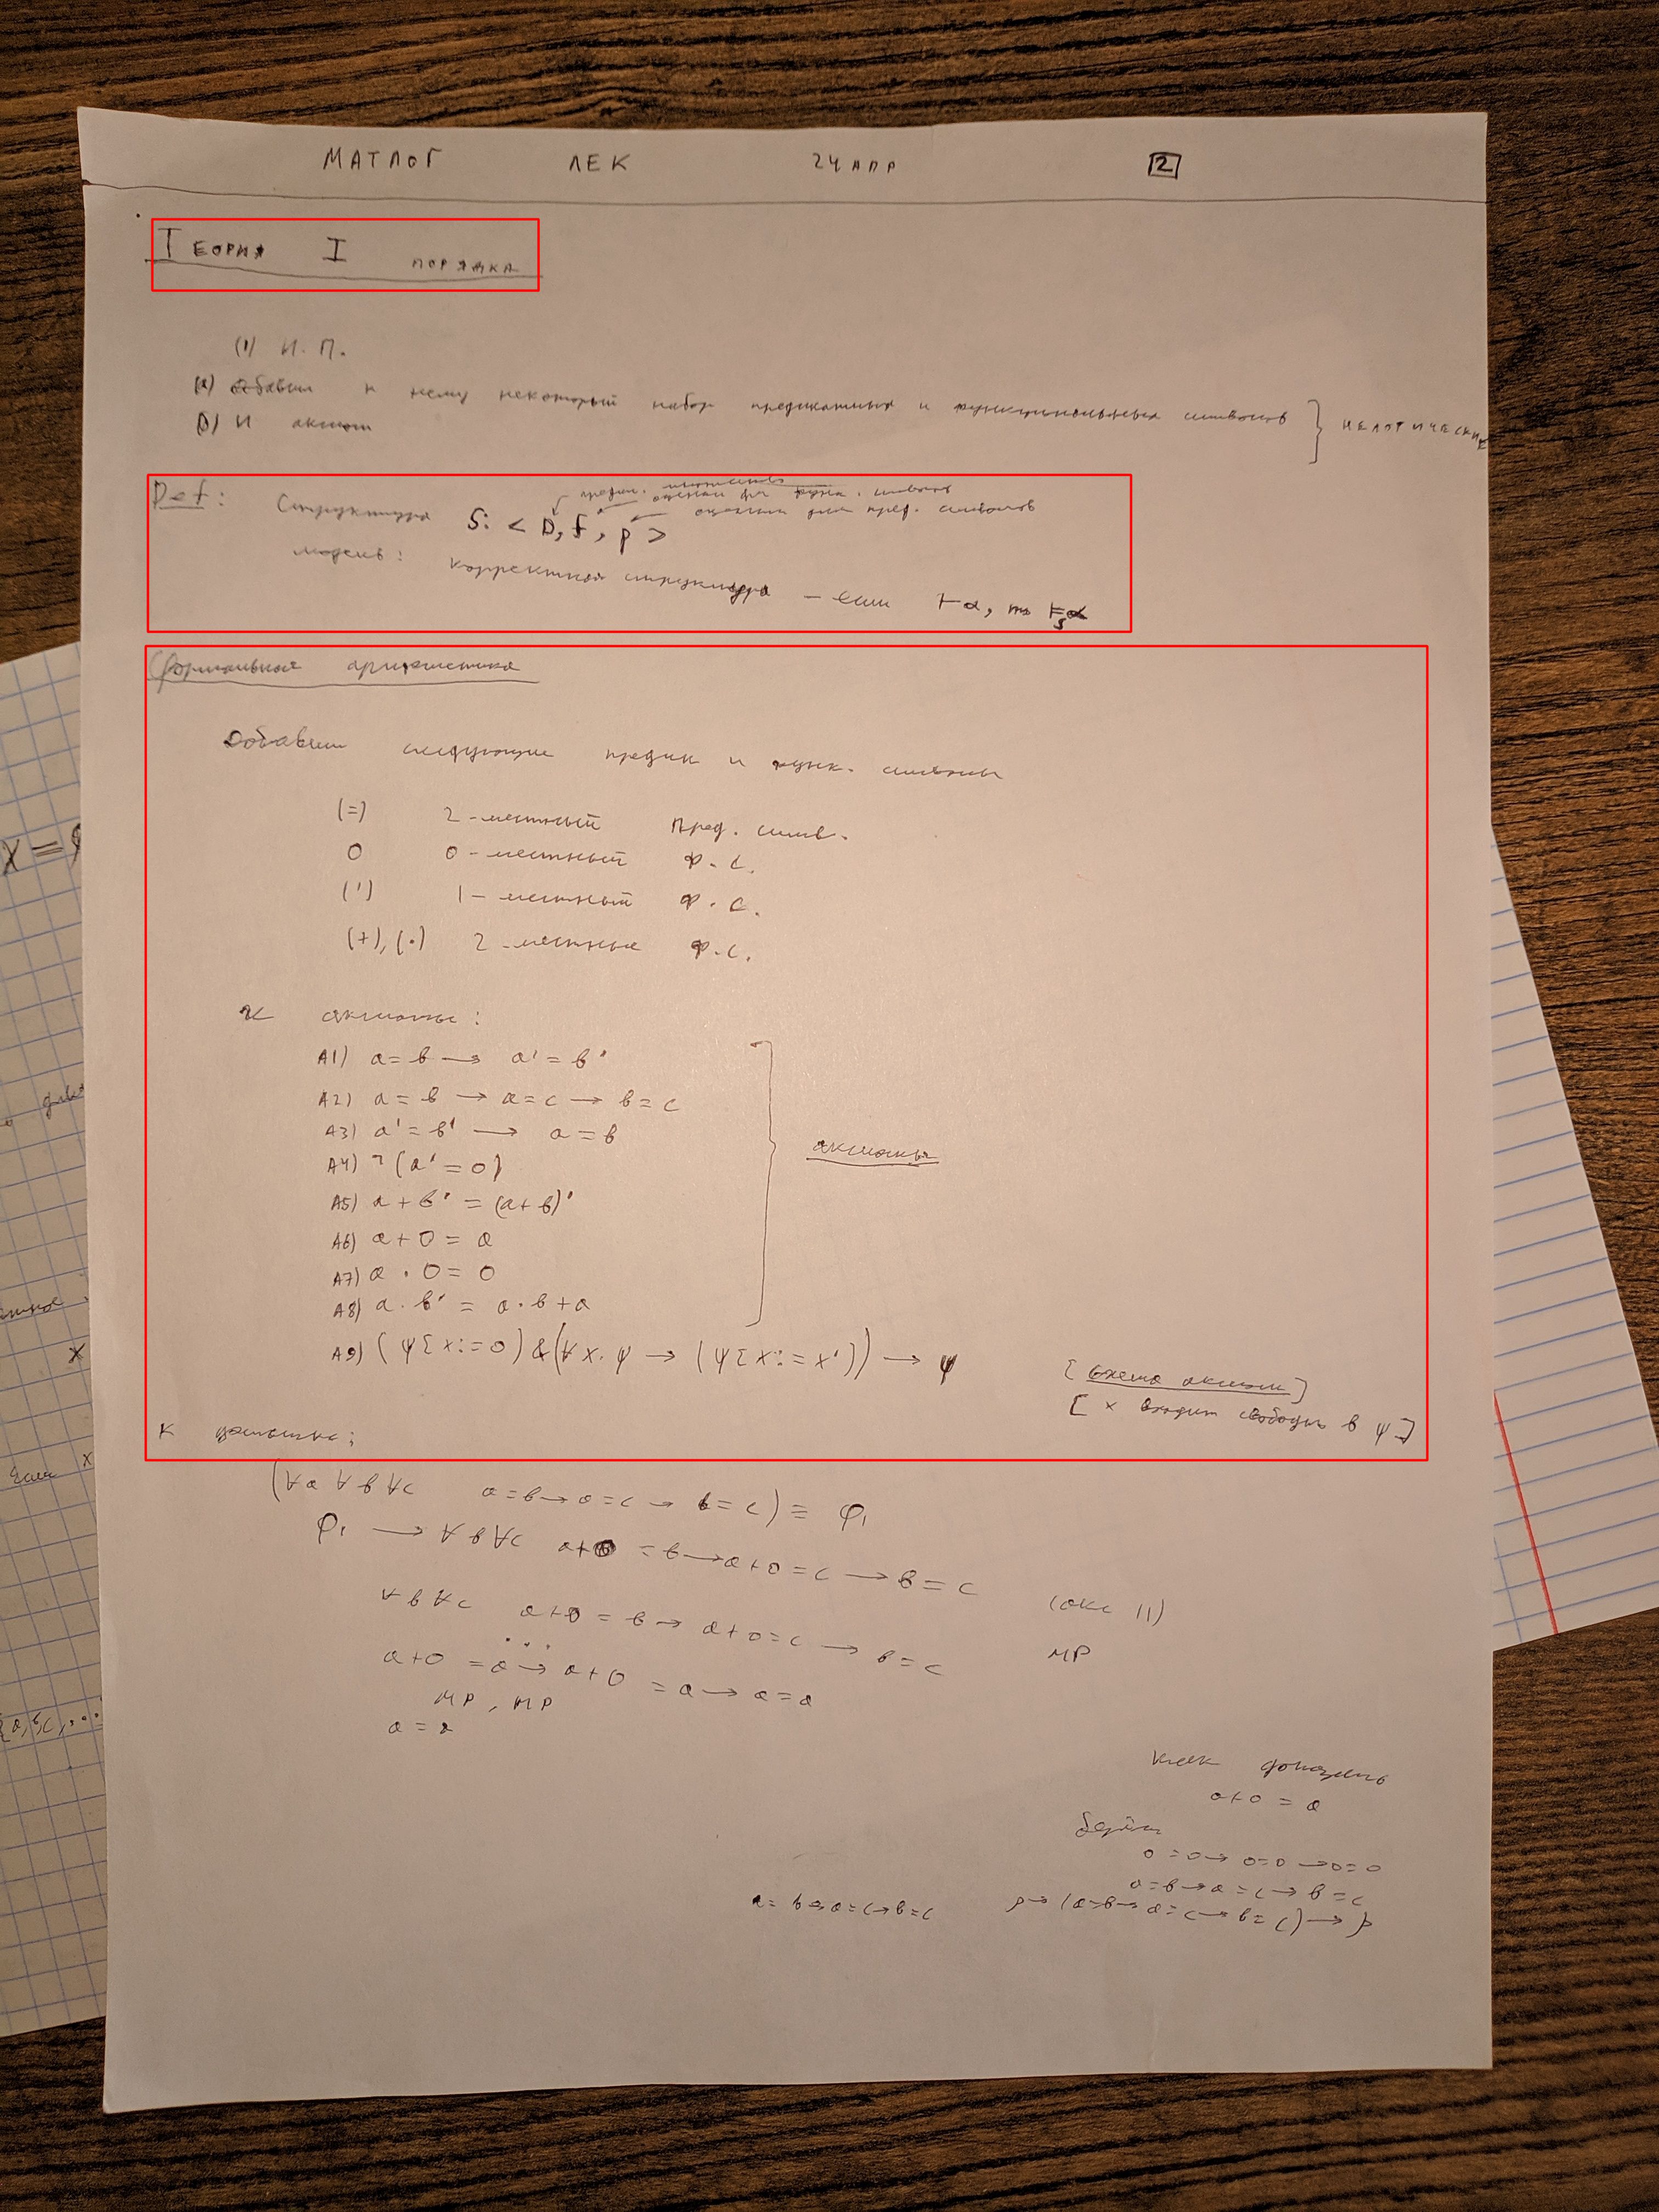 МАТЛОГ ЛЕК 24 АПР 2
ТЕОРИЯ I ПОРЯДКА
(1) И. П.
(2) добавим к нему некоторый набор предикатных и функциональных символов } НЕЛОГИЧЕСКИЕ
(3) И аксиом
предм. множество
оценки для функ. символов
Def: Структура S: < D, f, p > оценки для пред. символов
модель: корректная структура – если ⊢α, то ⊨ₛα
Формальная арифметика
Добавим следующие предик и функ. символы
(=) 2-местный пред. симв.
0 0-местный ф.с.
(') 1-местный ф.с.
(+), (·) 2-местные ф.с.
И аксиомы:
A1) a = b → a' = b'
A2) a = b → a = c → b = c
A3) a' = b' → a = b
A4) ¬(a' = 0)
аксиомы
A5) a + b' = (a + b)'
A6) a + 0 = a
A7) a · 0 = 0
A8) a · b' = a · b + a
A9) (ψ[x:=0) & (∀x. ψ → (ψ[x:=x')) → ψ
[схема аксиом]
[x входит свободно в ψ]
К
(∀a ∀b ∀c a=b → a=c → b=c) = φ₁
φ₁ → ∀b ∀c a+0 = b → a+0 = c → b = c (акс 11)
∀b ∀c a+0 = b → a+0 = c → b = c MP
...
a+0 = a → a+0 = a → a = a
MP, MP
a = a
как доказать
a+0 = a
берём
0=0 → 0=0 → 0=0
a=b → a=c → b=c
a=b→a=c→b=c p → (a=b → a=c → b=c) → p
x = 
x
x
{a,b,c,...